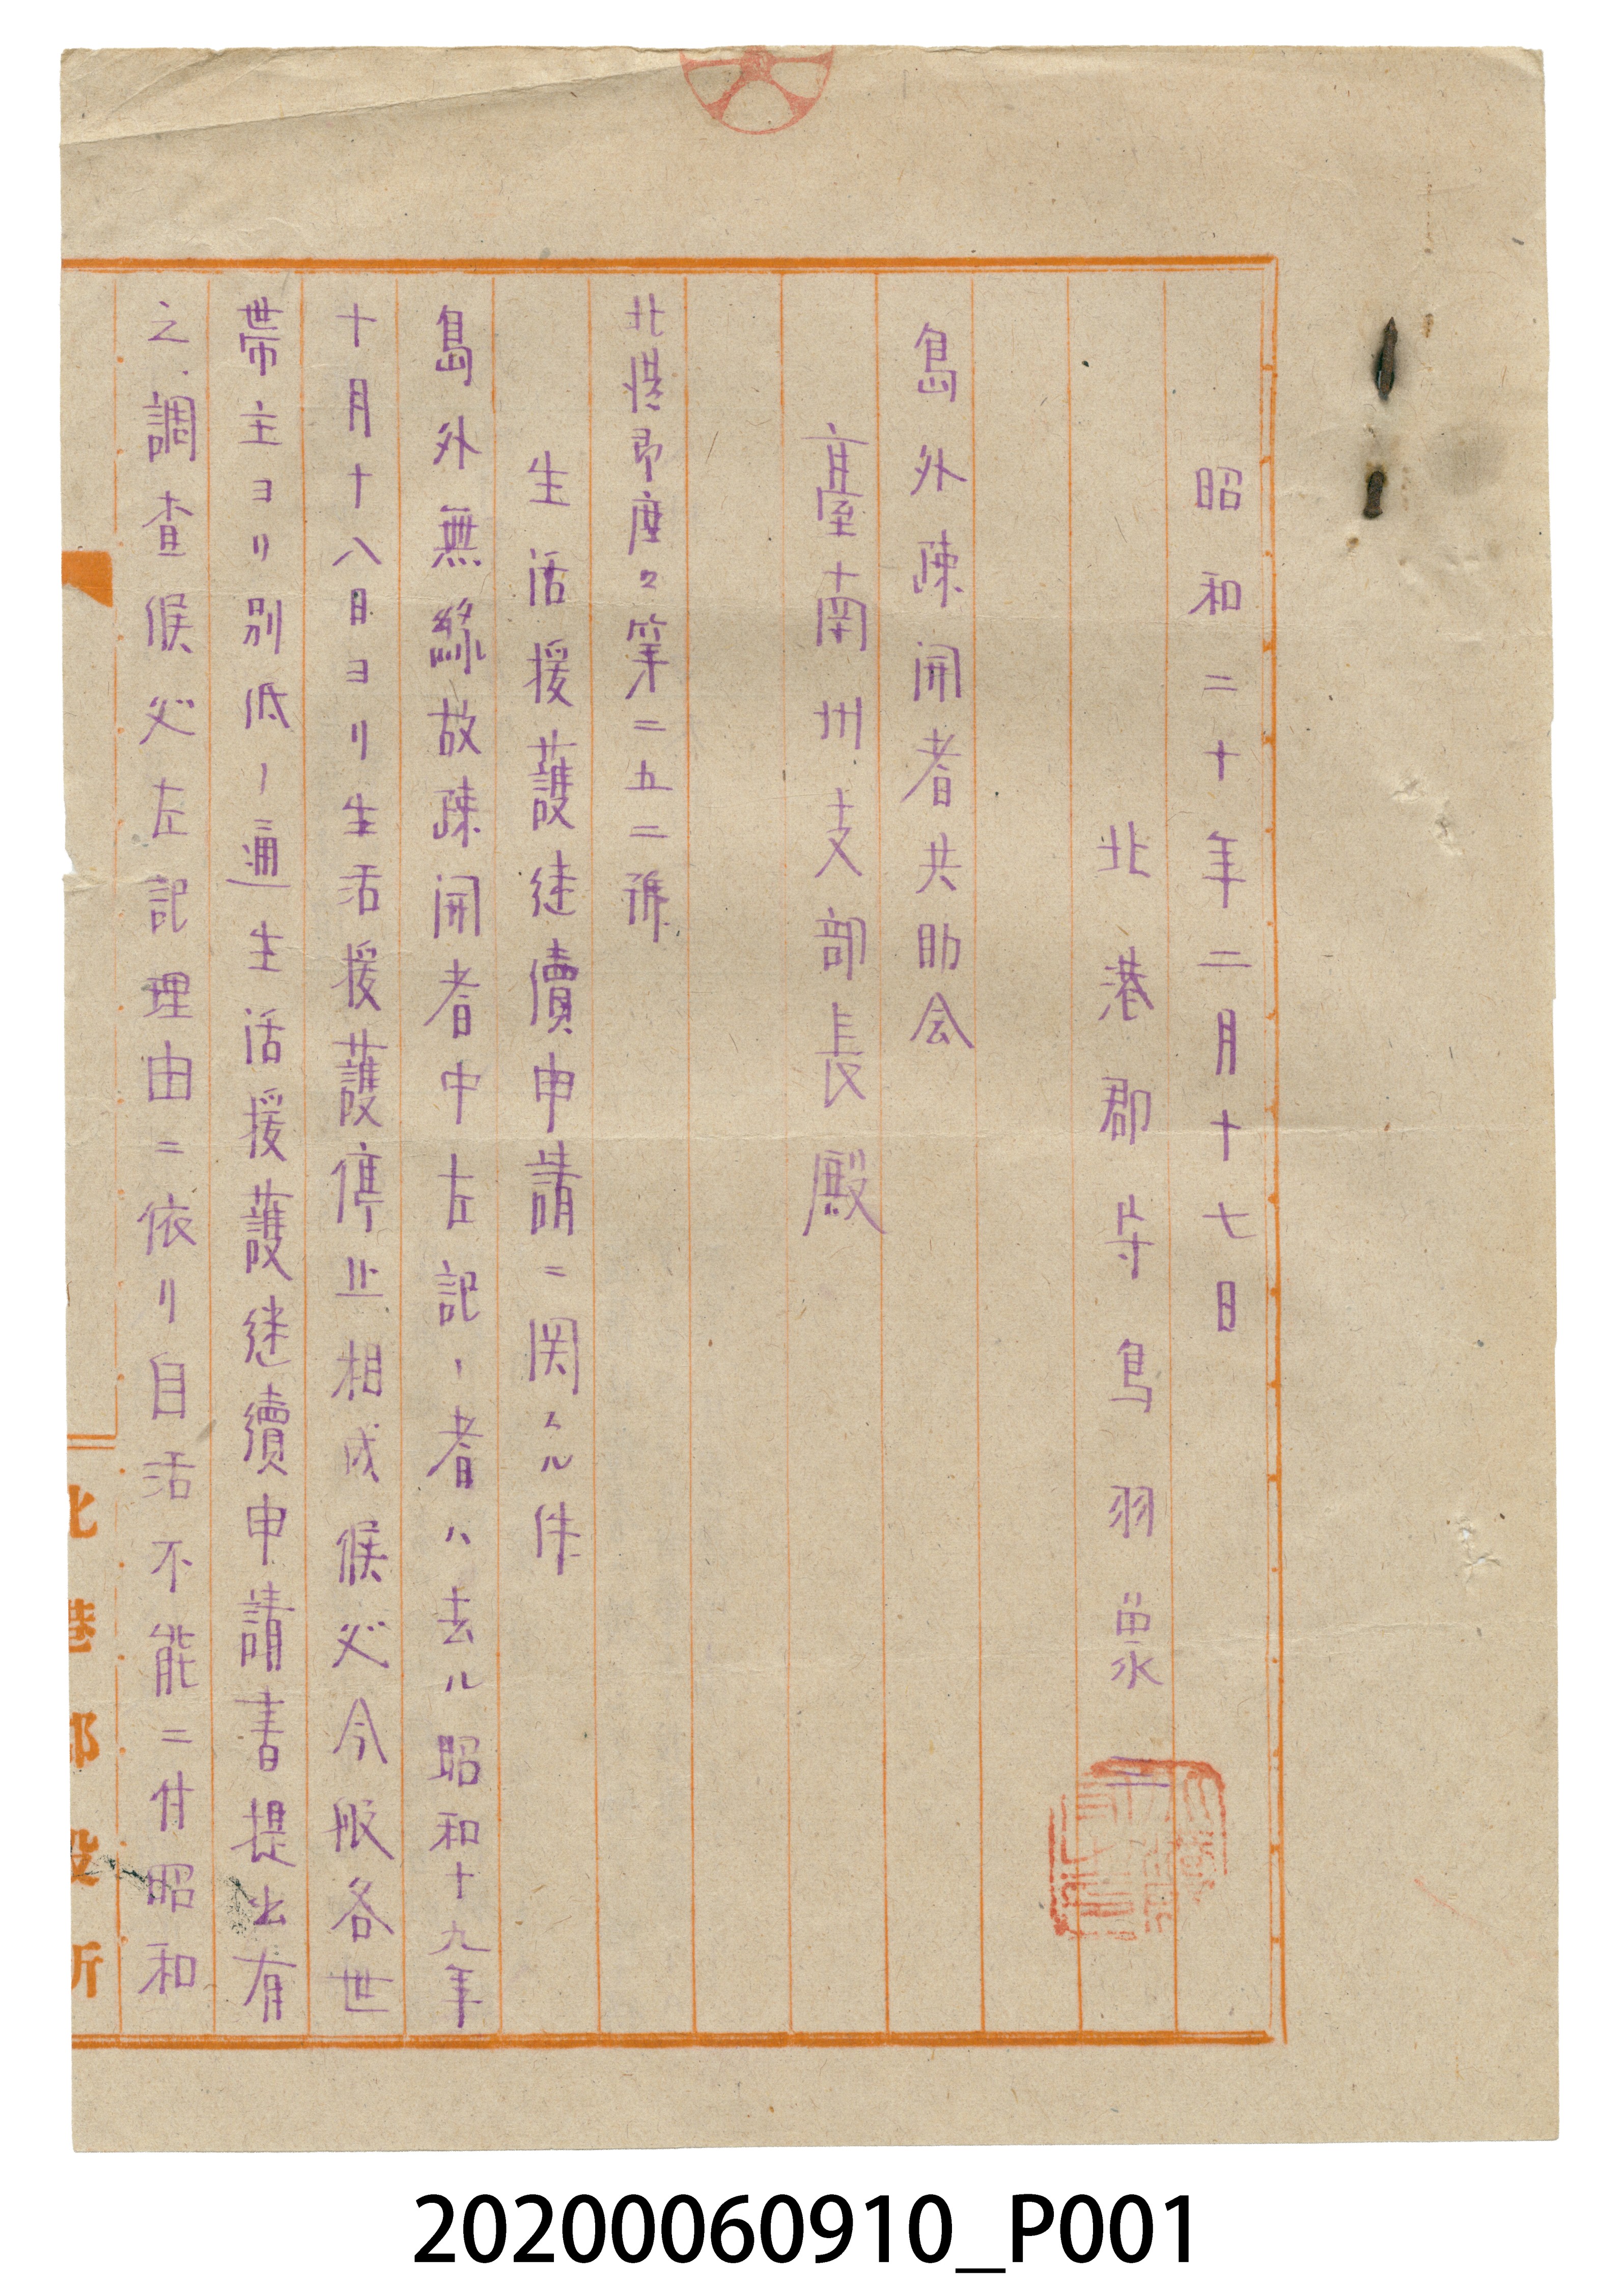 昭和二十年二月十七日
北港郡守鳥羽泉二
島外疎開者共助会
臺南州支部長殿
北港郡庶々第二五二號
生活援護継續申請ニ関スル件
島外無縁故疎開者中左記ノ者ハ去ル昭和十九年
十月十八日ヨリ生活援護停止相成候処今般各世
帯主ヨリ別低ノ通生活援護継續申請書提出有
之調査候処左記理由ニ依リ自活不能ニ付昭和
北港郡役所
20200060910_P001